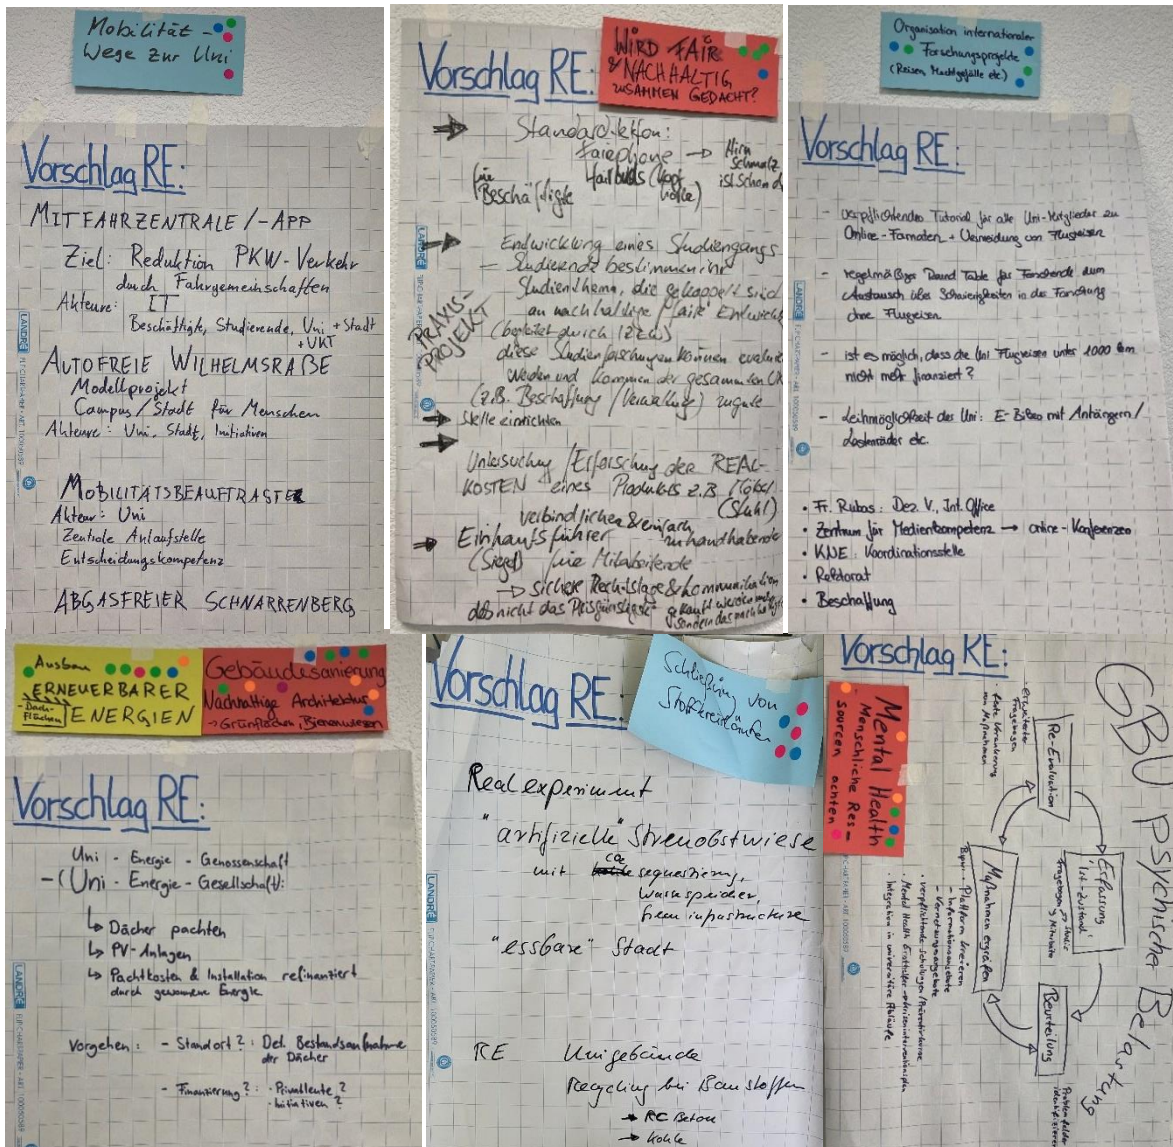 Mobilität -
Wege zur Uni
Vorschlag RE:
MITFAHRZENTRALE / - APP
Ziel: Reduktion PKW-Verkehr
durch Fahrgemeinschaften
Akteure: IT
Beschäftigte, Studierende, Uni + Stadt
+ VKT
AUTOFREIE WILHELMSRAßE
Modellprojekt
Campus / Stadt für Menschen
Akteure: Uni, Stadt, Initiativen
MOBILITÄTSBEAUFTRAGTE
Akteur: Uni
Zentrale Anlaufstelle
Entscheidungskompetenz
ABGASFREIER SCHNARRENBERG
WIRD FAIR
& NACHHALTIG
ZUSAMMEN GEDACHT?
Vorschlag RE:
Standardtelefon:
Fairphone → Hirn
Schmalz
ist schon d
für
Beschäftigte
PRAXIS-
PROJEKT
Entwicklung eines Studiengangs
- Studierende bestimmen ihr
Studienthema, die gekoppelt sind
an nachhaltige / faire Entwick
(begleitet durch IZEW)
diese Studien forschungen können evalu
werden und kommen der gesammten
(z.B. Beschaffung / Verwaltung) zugute
Stelle einrichten
Untersuchung / Erforschung der REAL-
KOSTEN eines Produktes z.B.
(Stuhl)
verbindlicher & einfach
Einkaufsführer zu handhabende
(Siegel) für Mitarbeitende
→ sichere Rechtslage & Kommunikation
daß nicht das Preisgünstigste gekauft werden
sondern das nachhaltig
Organisation internationaler
Forschungsprojekte
(Reisen, Machtgefälle etc.)
Vorschlag RE:
- verpflichtendes Tutorial für alle Uni-Mitglieder zu
Online-Formaten + Vermeidung von Flugreisen
- regelmäßiger Round Table für Forschende zum
Austausch über Schwierigkeiten in der Forschung
ohne Flugreisen
- ist es möglich, dass die Uni Flugreisen unter 1000 km
nicht mehr finanziert?
- Leihmöglichkeit der Uni: E-Bikes mit Anhängern /
Lastenräder etc.
• Fr. Rubas: Dez. V., Int. Office
• Zentrum für Medienkompetenz → online-Konferenzen
• KNE: Koordinationsstelle
• Rektorat
• Beschaffung
Ausbau
ERNEUERBARER
- Dach-
Flächen
ENERGIEN
Gebäudesanierung
Nachhaltige Architektur
→ Grünflächen, Bienenwiesen
Vorschlag RE:
Uni - Energie - Genossenschaft
- (Uni - Energie - Gesellschaft):
↳ Dächer pachten
↳ PV-Anlagen
↳ Pachtkosten & Installation refinanziert
durch gewonnene Energie
Vorgehen: - Standort?: Det. Bestandsaufnahme
der Dächer
- Finanzierung?: · Privatleute?
· Initiativen?
Vorschlag RE:
Schließung von
Stoffkreisläufen
Realexperiment
"artifizielle" Streuobstwiese
mit CO2 sequestrierung,
wärmespeicher,
"essbare" Stadt
RE Unigebäude
Recycling bei Baustoffen
→ RC Beton
→ Kohle
Vorschlag RE:
Mental Health
Menschliche Res-
sourcen achten
GBU psychischer Belastung
Re-Evaluation
- erweiterter
Fragebogen
feste Verankerung
von Maßnahmen
Erfassung
"Ist-Zustand"
Fragebogen → Studis
→ Mitarbeiter
Beurteilung
Problemfelder
identifizieren
Maßnahmen ergreifen
- Plattform kreieren
- Informationsangebote
- Vernetzungsangebote
· verpflichtende Schulungen / Präventivkurse
· Mental Health Ersthelfer → Kriseninterventionsplan
· Integration in universitäre Abläufe
LANDRÉ